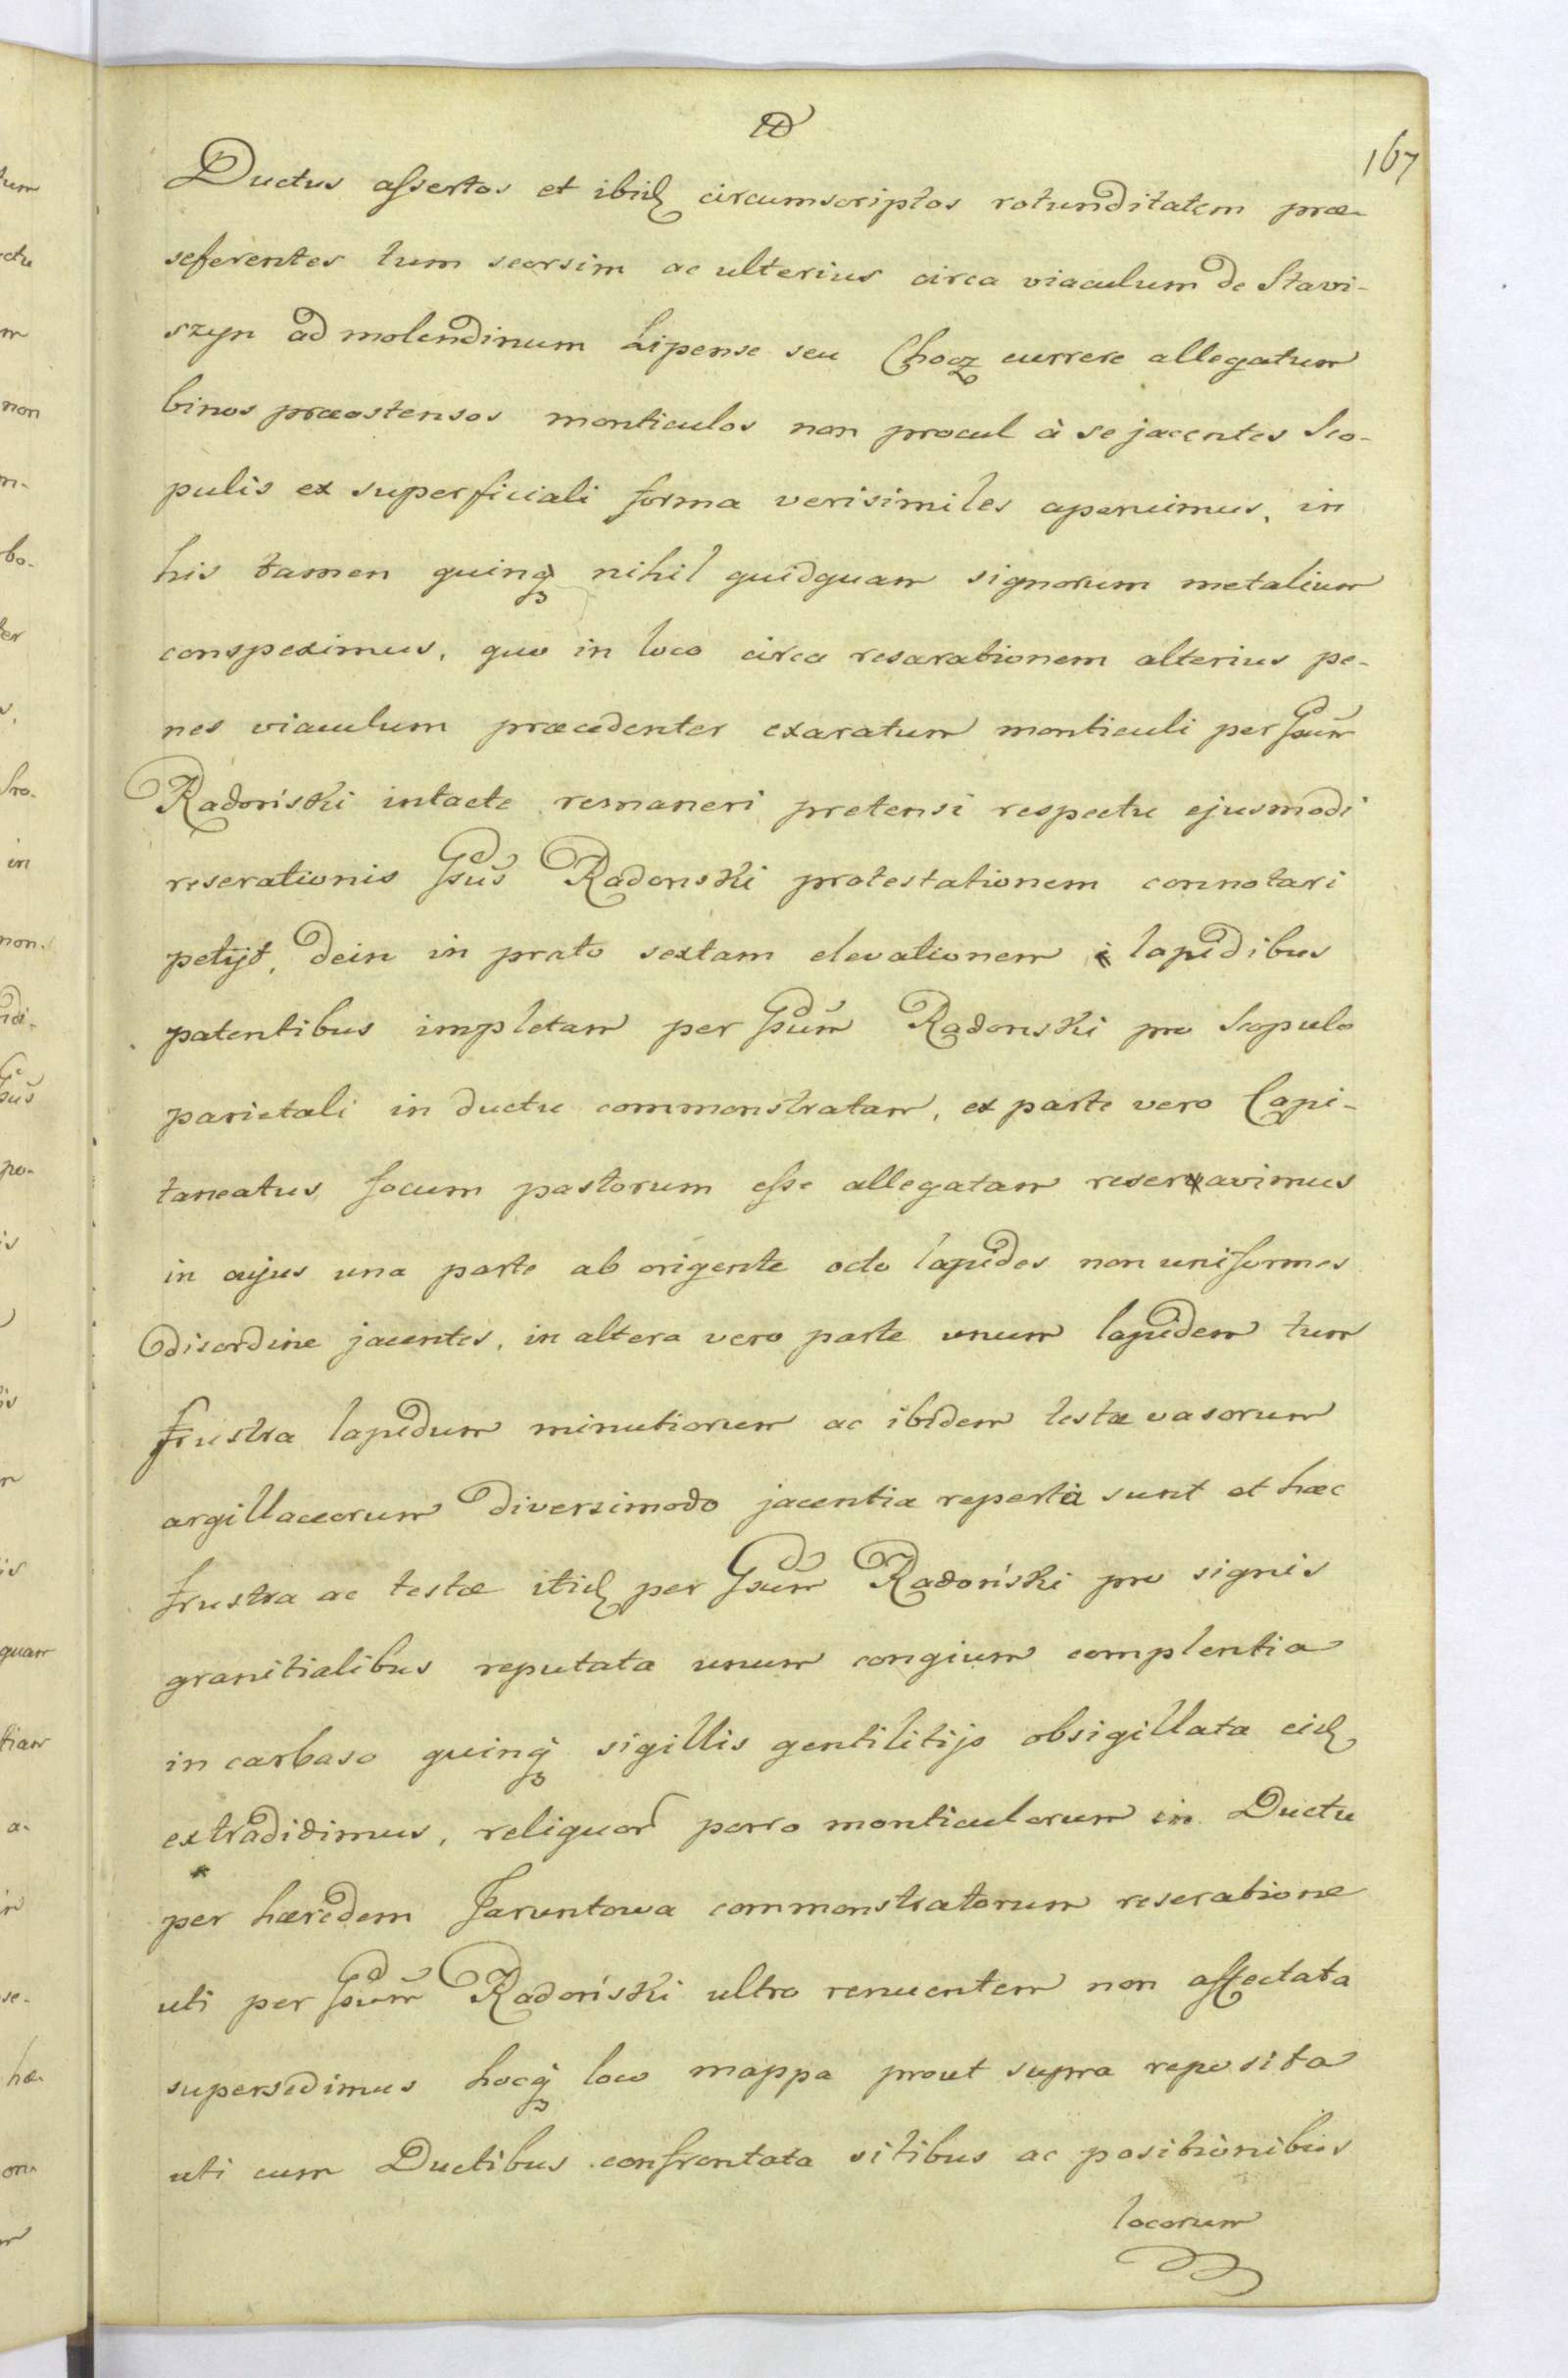 167
Ductus assertos et ibid circumscriptos rotunditatem præ-
seferentes tum seorsim ac ulterius circa viaculum de Stavi-
szyn ad molendinum Lipense seu Chocz currere allegatum
binos præostensos monticulos non procul à se jacentes Sco-
pulis ex superficiali forma verisimiles aperuimus, in
his tamen quinq nihil quidquam signorum metalium
conspeximus, quo in loco circa resarationem alterius pe-
nes viaculum præcedenter exaratum monticuli per Gsum
Radoński intacte remaneri pretensi respectu ejusmodi
reserationis Gsus Radonski protestationem connotari
petijt, dein in prato sextam elevationem lapidibus
patentibus impletam per Gsum Radonski pro Scopulo
parietali in ductu commonstratam, ex parte vero Capi-
taneatus focum pastorum esse allegatam reseravimus
in cujus una parte ab origente octo lapides non uniformes
disordine jacentes, in altera vero parte unum lapidem tum
frustra lapidum minutiorum ac ibidem testæ vasorum
argillaceorum diversimodo jacentia reperta sunt et hæc
frustra ac testæ itid per Gsum Radoński pro signis
granitialibus reputata unum congium complentia
in carbaso quinq sigillis gentilitijs obsigillata eid
extradidimus, reliquor porro monticulorum in Ductu
per hæredem Jaruntowa commonstratorum reseratione
uti per Gsum Radoński ultro renuentem non affectata
supersedimus hocq loco mappa prout supra reposita
uti cum Ductibus confrontata sitibus ac positionibus
locorum